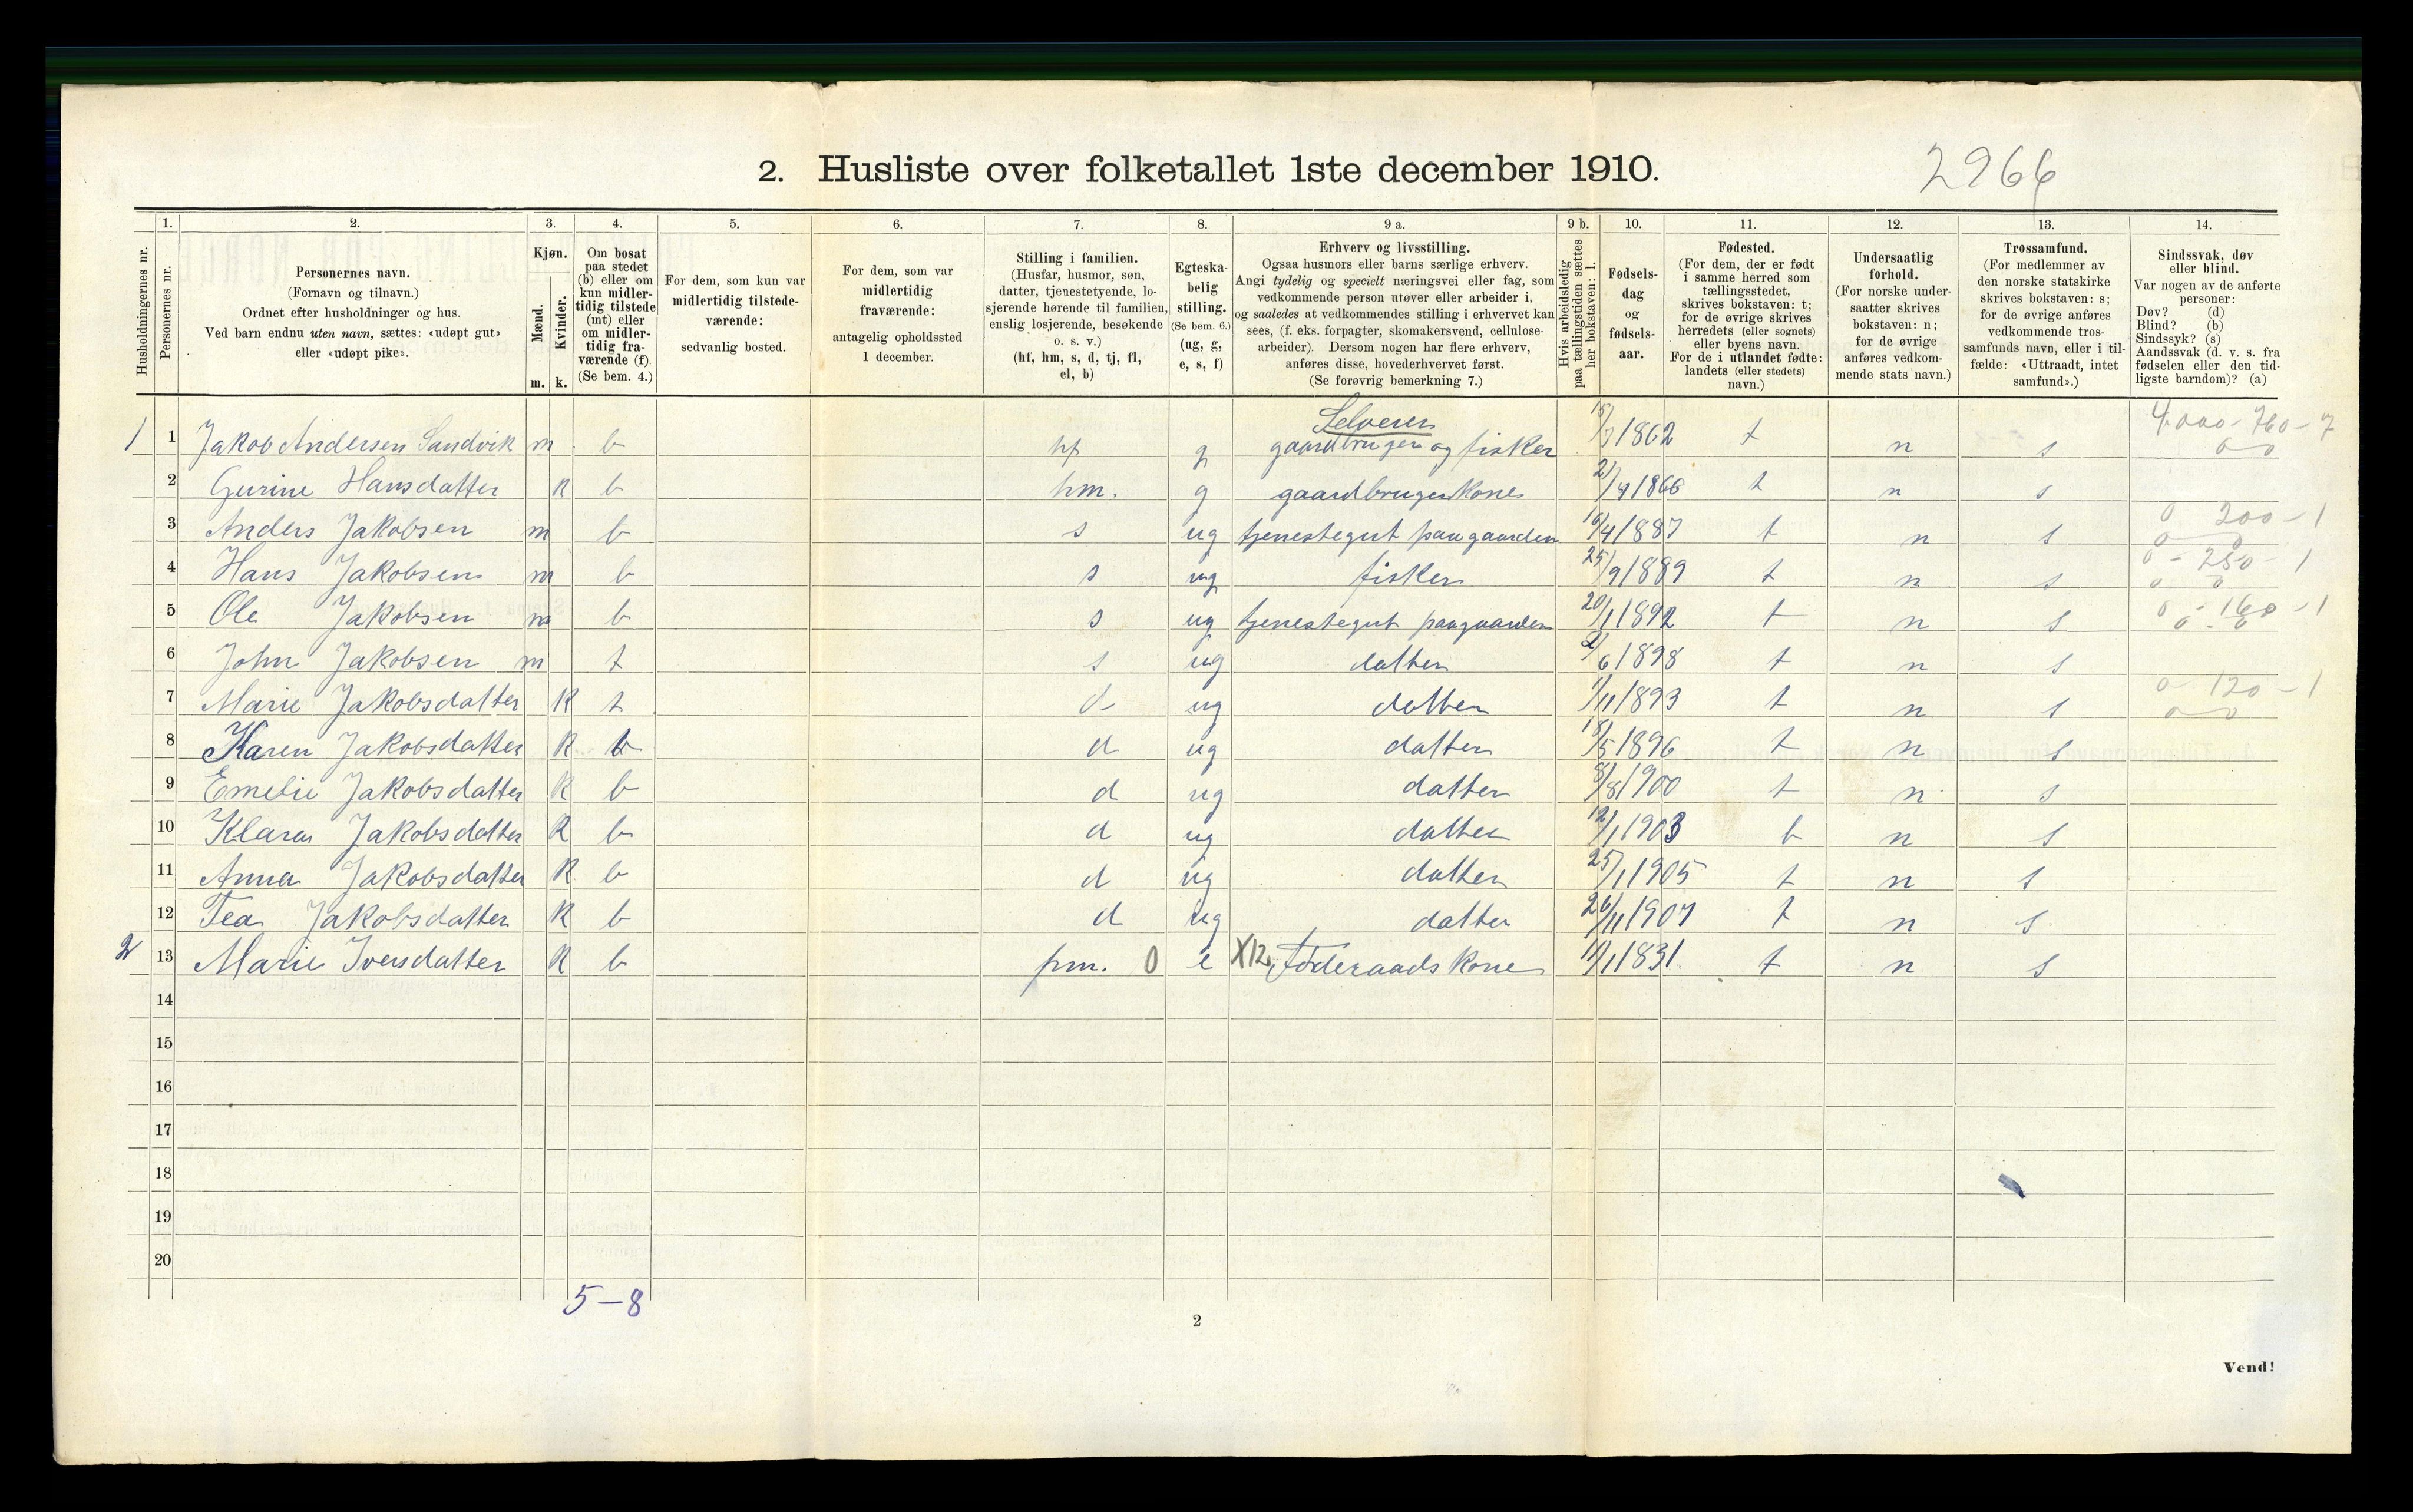 2. Husliste over folketallet 1ste december 1910.
2966
1. 2. 3. 4. 5. 6. 7. 8. 9 a. 9 b. 10. 11. 12. 13. 14.
Husholdningernes nr.
Personernes nr.
Personernes navn.
(Fornavn og tilnavn.)
Ordnet efter husholdninger og hus.
Ved barn endnu uten navn, sættes: «udøpt gut»
eller «udøpt pike».
Kjøn.
Mænd.
Kvinder.
m. k.
Om bosat
paa stedet
(b) eller om
kun midler-
tidig tilstede
(mt) eller
om midler-
tidig fra-
værende (f).
(Se bem. 4.)
For dem, som kun var
midlertidig tilstede-
værende:
sedvanlig bosted.
For dem, som var
midlertidig
fraværende:
antagelig opholdssted
1 december.
Stilling i familien.
(Husfar, husmor, søn,
datter, tjenestetyende, lo-
sjerende hørende til familien,
enslig losjerende, besøkende
o. s. v.)
(hf, hm, s, d, tj, fl,
el, b)
Egteska-
belig
stilling.
(Se bem. 6.)
(ug, g,
e, s, f)
Erhverv og livsstilling.
Ogsaa husmors eller barns særlige erhverv.
Angi tydelig og specielt næringsvei eller fag, som
vedkommende person utøver eller arbeider i,
og saaledes at vedkommendes stilling i erhvervet kan
sees, (f. eks. forpagter, skomakersvend, cellulose-
arbeider). Dersom nogen har flere erhverv,
anføres disse, hovederhvervet først.
(Se forøvrig bemerkning 7.)
Hvis arbeidsledig
paa tællingstiden sættes
her bokstaven: l.
Fødsels-
dag
og
fødsels-
aar.
Fødested.
(For dem, der er født
i samme herred som
tællingsstedet,
skrives bokstaven: t;
for de øvrige skrives
herredets (eller sognets)
eller byens navn.
For de i utlandet fødte:
landets (eller stedets)
navn.)
Undersaatlig
forhold.
(For norske under-
saatter skrives
bokstaven: n;
for de øvrige
anføres vedkom-
mende stats navn.)
Trossamfund.
(For medlemmer av
den norske statskirke
skrives bokstaven: s;
for de øvrige anføres
vedkommende tros-
samfunds navn, eller i til-
fælde: «Uttraadt, intet
samfund».)
Sindssvak, døv
eller blind.
Var nogen av de anførte
personer:
Døv? (d)
Blind? (b)
Sindssyk? (s)
Aandssvak (d. v. s. fra
fødselen eller den tid-
ligste barndom)? (a)
Selveier 4000-760-7
1 1 Jakob Andersen Sandvik m b hf g gaardbruger og fisker 1862 t n s 0 0
2 Gurine Hansdatter k b hm. g gaardbrugerkone 1866 t n s
0 200-1
3 Anders Jakobsen m b s ug tjenestegut paa gaarden 16/4 1887 t n s 0 0
0-250-1
4 Hans Jakobsen m b s ug fisker 25/9 1889 t n s 0 0
0-160-1
5 Ole Jakobsen m b s ug tjenestegut paa gaarden 20/1 1892 t n s 0-0
6 John Jakobsen m t s ug datter 1898 t n s
0-120-1
7 Marie Jakobsdatter k t d ug datter 1/11 1893 t n s 0 0
8 Karen Jakobsdatter k b d ug datter 18/5 1896 t n s
9 Emelie Jakobsdatter k b d ug datter 8/8 1900 t n s
10 Klara Jakobsdatter k b d ug datter 12/1 1903 t n s
11 Anna Jakobsdatter k b d ug datter 25/1 1905 t n s
12 Tea Jakobsdatter k b d ug datter 26/11 1907 t n s
2 13 Marie Iversdatter k b 0 e X12 Føderaadskone 11/1 1831 t n s
14
15
16
17
18
19
20
5-8
2
Vend!